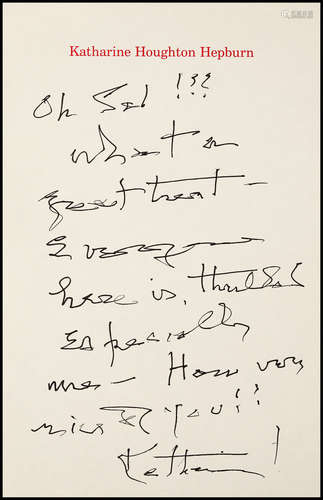 Katharine Houghton Hepburn
Oh Sal!!!
what a
great treat —
Everyone
here is thrilled
Especially
me — How very
nice of you!!
Katharine